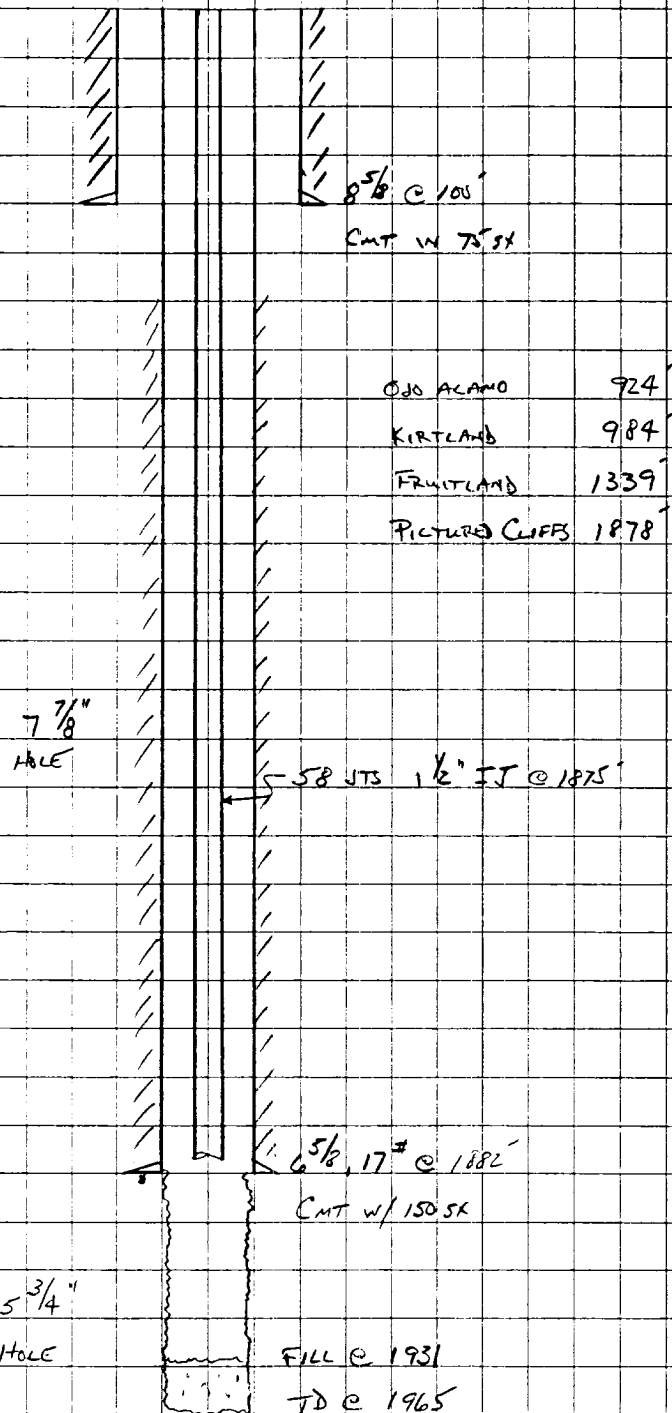 8 5/8 @ 100'
CMT W 75 SX
OJO ALAMO 924'
KIRTLAND 984'
FRUITLAND 1339'
PICTURED CLIFFS 1878'
7 7/8"
HOLE
58 JTS 1 1/2" IJ @ 1875'
6 5/8, 17# @ 1882'
CMT W/ 150 SX
5 3/4"
HOLE
FILL @ 1931
TD @ 1965